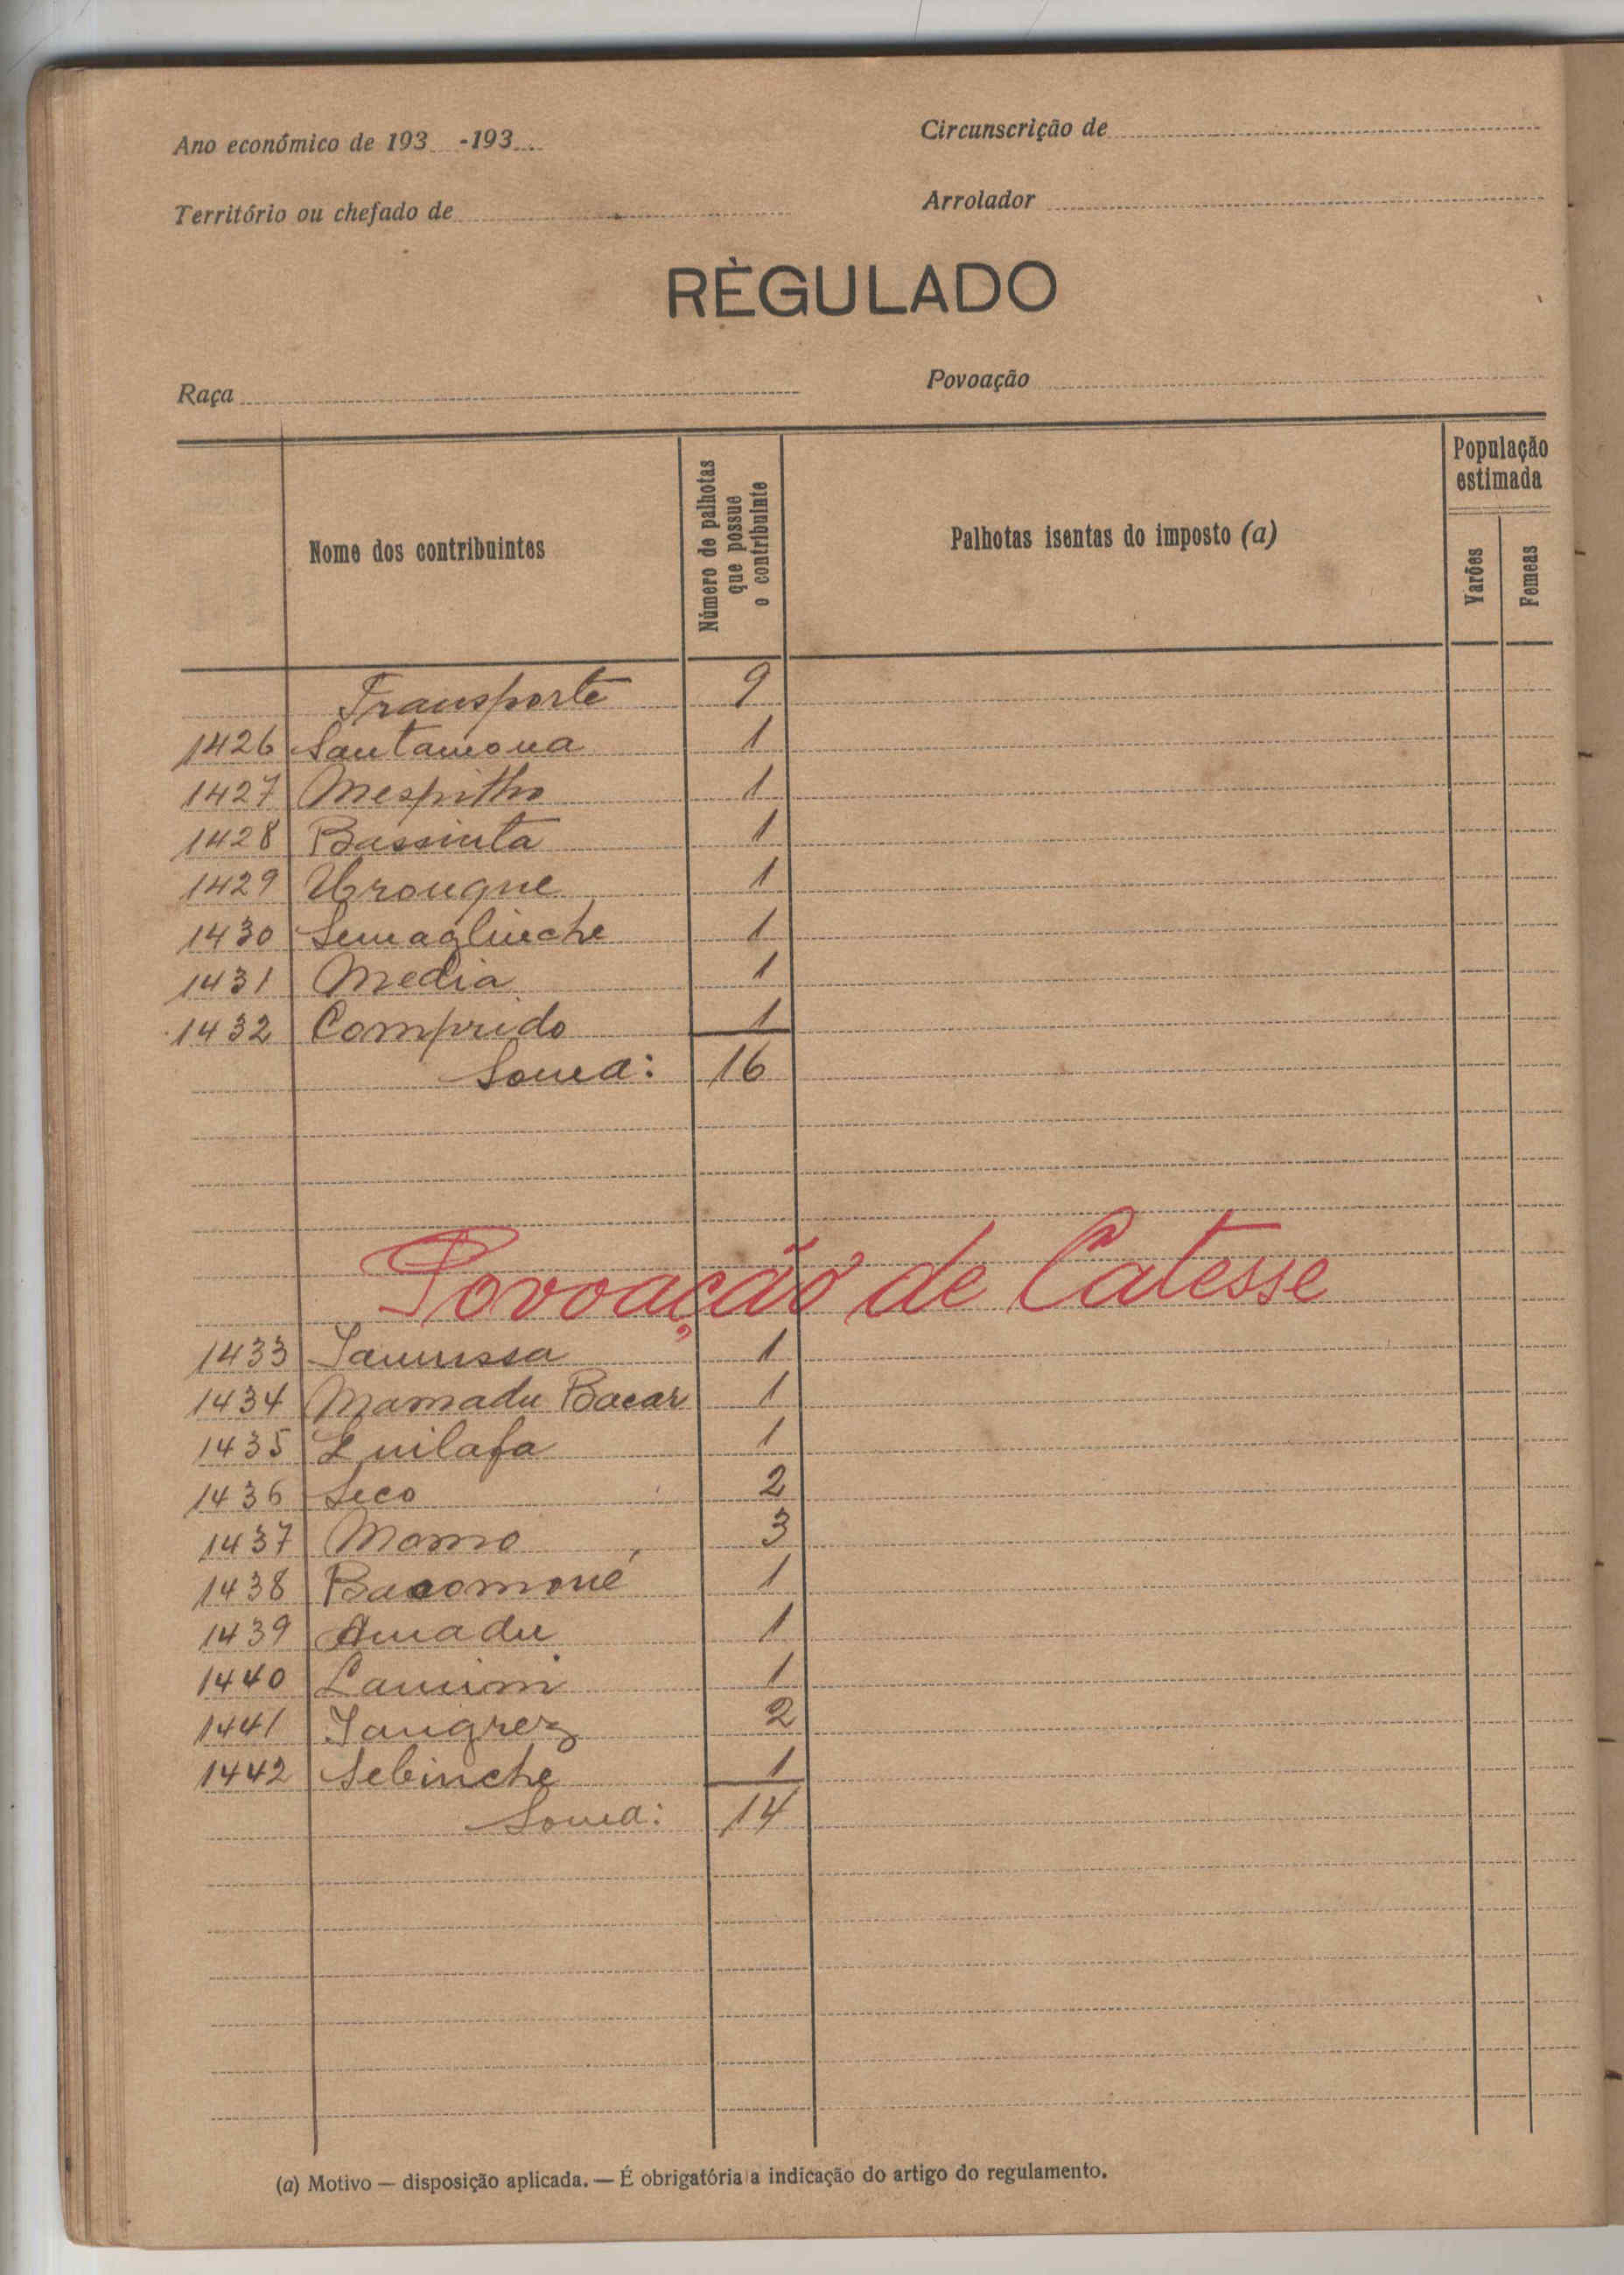 Ano económico de 193 -193
Circunscrição de
Território ou chefado de
Arrolador
RÈGULADO
Raça
Povoação
Nome dos contribuintes
Número de palhotas
que possue
o contribuinte
Palhotas isentas do imposto (a)
População
estimada
Varões
Femeas
Transporte 9
1426 Santamona 1
1427 Mespitho 1
1428 Bassinta 1
1429 Uronque 1
1430 1
1431 Media 1
1432 Comprido 1
Soma: 16
Povoação de Catesse
1433 1
1434 Mamadu Bacar 1
1435 Quilafa 1
1436 Seco 2
1437 Momo 3
1438 1
1439 Amadu 1
1440 Lamini 1
1441 2
1442 Sebinche 1
Soma: 14
(a) Motivo — disposição aplicada. — É obrigatória a indicação do artigo do regulamento.